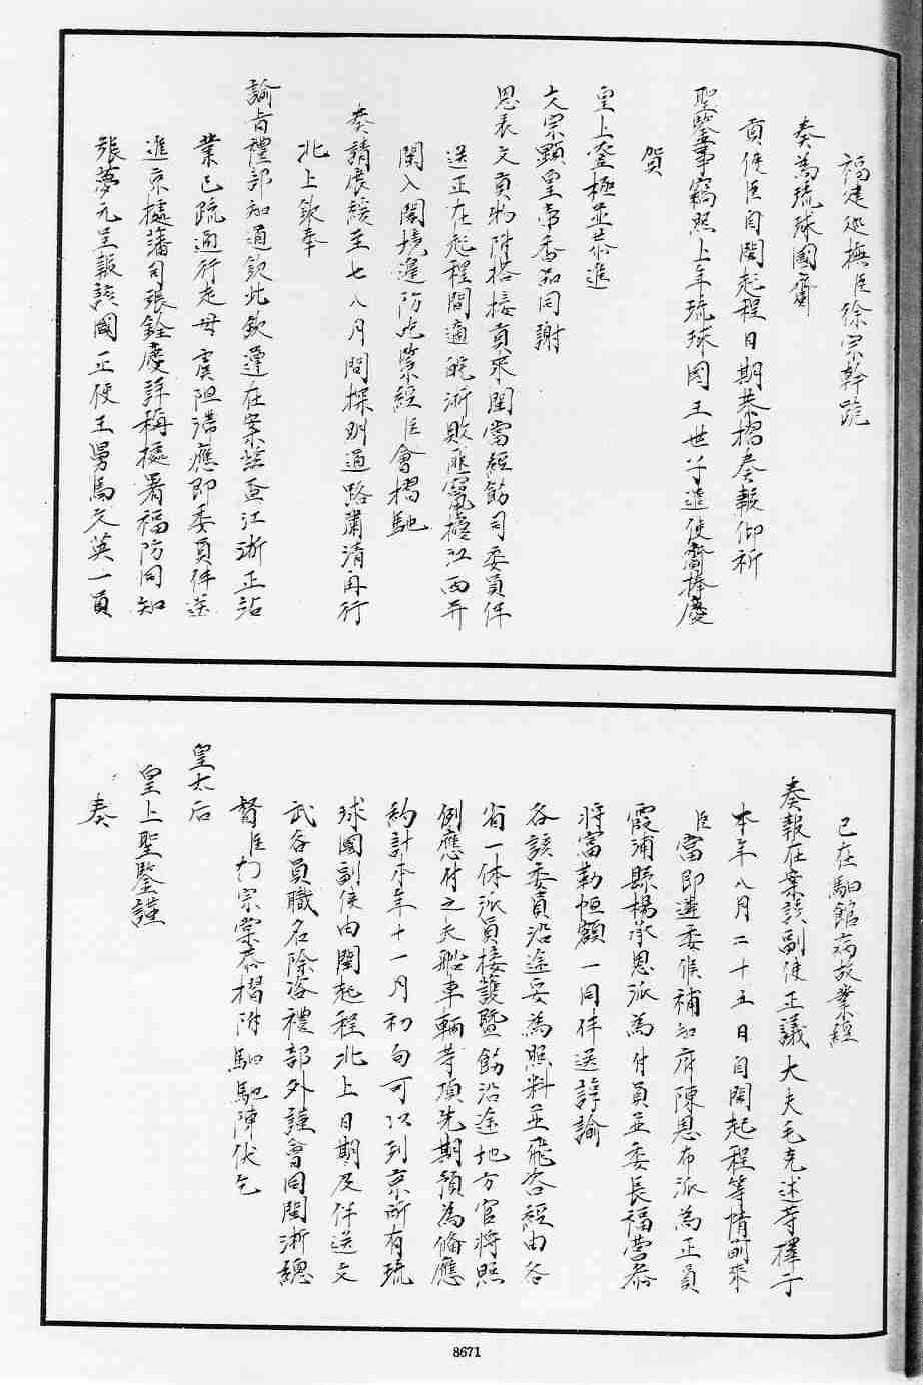 福建巡撫臣徐宗幹跪
奏為琉球國齎
貢使臣自閩起程日期恭摺奏報仰祈
聖鑒事竊照上年琉球國王世子遣使齎捧慶
賀
皇上登極並恭進
文宗顯皇帝香品同謝
恩表文貢物附搭接貢來閩當經飭司委員伴
送正在起程間適皖浙敗匪竄擾江西并
闌入閩境邊防吃緊經臣會摺馳
奏請展緩至七八月間探明道路肅清再行
北上欽奉
諭旨禮部知道欽此欽遵在案茲查江浙正站
業已疏通行走毋虞阻滯應即委員伴送
進京據藩司張銓慶詳稱據署福防同知
張夢元呈報該國正使王舅馬文英一員
已在驛館病故業經
奏報在案該副使正議大夫毛克述等擇于
本年八月二十五日自閩起程等情前來
臣當即遴委候補知府陳恩布派為正員
霞浦縣楊承恩派為付員並委長福營參
將富勒恒額一同伴送諄諭
各該委員沿途妥為照料並飛咨經由各
省一体派員接護暨飭沿途地方官將照
例應付之夫船車輛等項先期預為備應
約計本年十一月初旬可以到京所有琉
球國副使由閩起程北上日期及伴送文
武各員職名除咨禮部外謹會同閩浙總
督臣左宗棠恭摺附馹馳陳伏乞
皇太后
皇上聖鑒謹
奏
8671